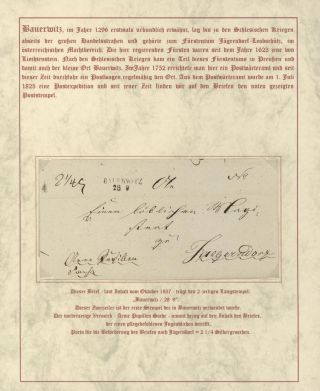 Bauerwitz, im Jahre 1296 erstmals urkundlich erwähnt, lag bis zu den Schlesischen Kriegen
abseits der großen Handelsstraßen und gehörte zum Fürstentum Jägerndorf-Leobschütz, im
österreichischen Machtbereich. Die hier regierenden Fürsten waren seit dem Jahre 1623 die von
Liechtenstein. Nach den Schlesischen Kriegen kam ein Teil dieses Fürstentums zu Preußen und
damit auch der kleine Ort Bauerwitz. Im Jahre 1752 errichtete man hier ein Postwärteramt und seit
dieser Zeit durchfuhr ein Postwagen regelmäßig den Ort. Aus dem Postwärteramt wurde am 1. Juli
1825 eine Postexpedition und seit jener Zeit finden wir auf den Briefen den unten gezeigten
Poststempel.
BAUERWITZ
28 9
Einen löblichen Magi-
strat
zu
Jaegerndorf
Dieser Brief - laut Inhalt vom Oktober 1837 - trägt den 2-zeiligen Langstempel:
"Bauerwitz / 28 9"
Dieser Zweizeiler ist der erste Stempel der in Bauerwitz verwendet wurde.
Der vorderseitige Vermerk - Arme Pupillen Sache - nimmt bezug auf den Inhalt des Briefes,
der einen pflegebefohlenen Jugendlichen betrifft.
Porto für die Beförderung des Briefes nach Jägerndorf = 2 1/4 Silbergroschen.